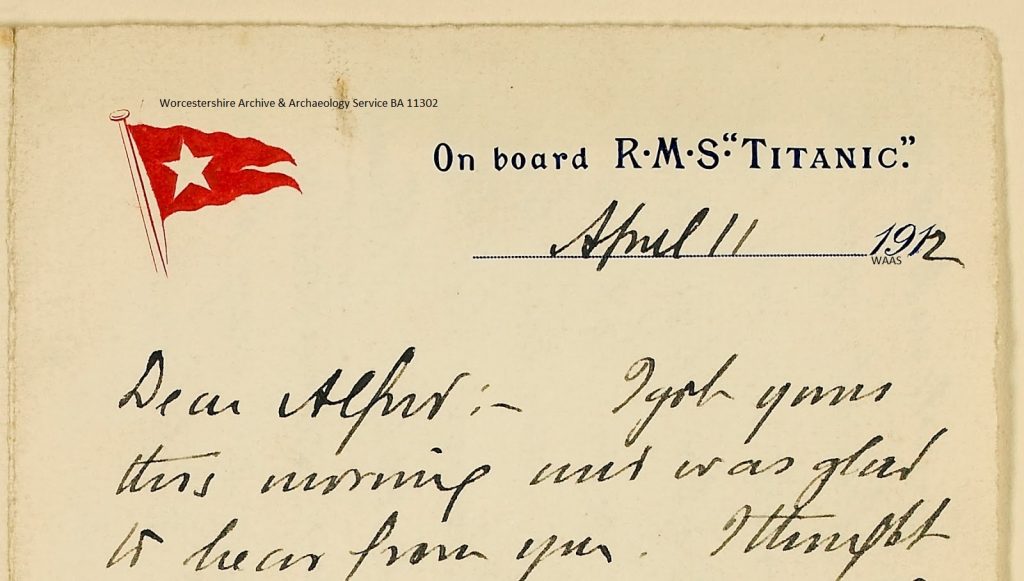 Worcestershire Archive & Archaeology Service BA 11302
On board R·M·S·"TITANIC."
April 11 1912
WAAS
Dear Alfred:- I got yours
this morning and was glad
to hear from you. I thought